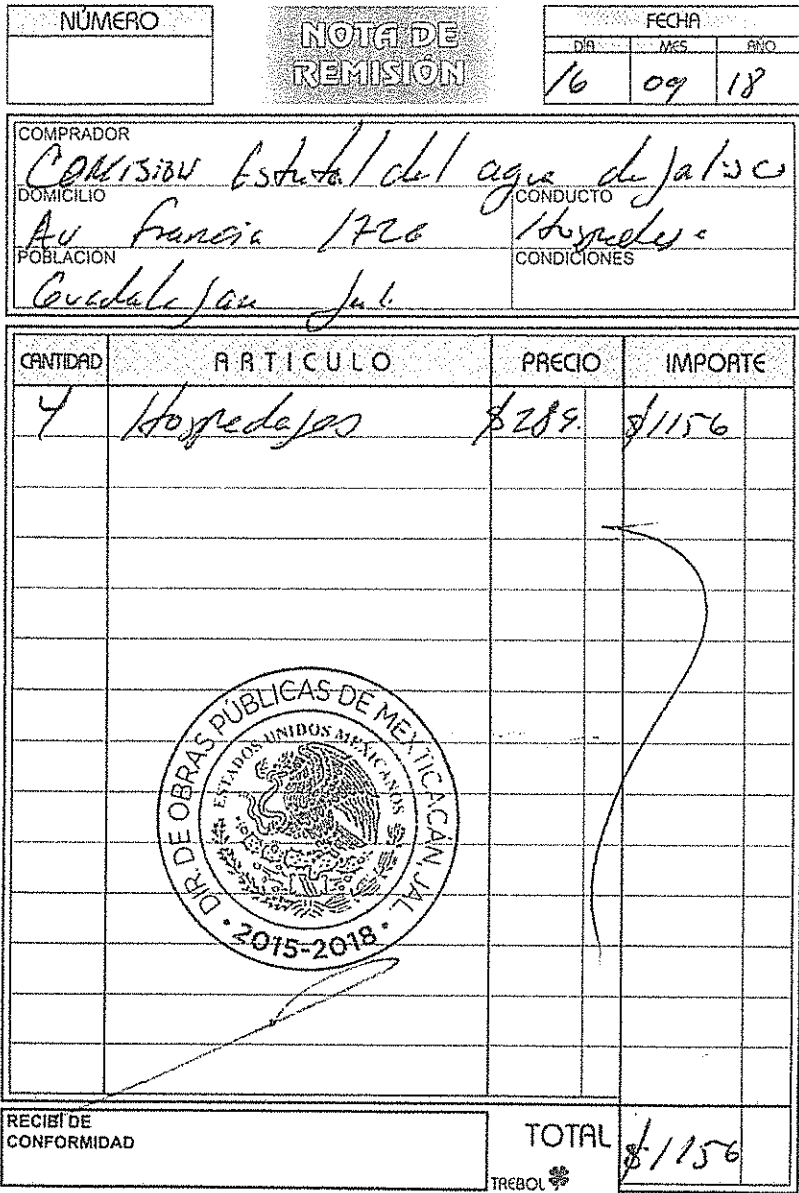 NÚMERO
NOTA DE REMISIÓN
FECHA
DÍA MES AÑO
16 09 18
COMPRADOR
Comision Estatal del agua de Jalisco
DOMICILIO
Av Francia 1726
CONDUCTO
Hospedaje
POBLACIÓN
Guadalajara Jal.
CONDICIONES
CANTIDAD ARTICULO PRECIO IMPORTE
4 Hospedajes $289. $1156
DIR. DE OBRAS PÚBLICAS DE MEXTICACÁN JAL.
ESTADOS UNIDOS MEXICANOS
• 2015-2018 •
RECIBÍ DE
CONFORMIDAD
TOTAL $1156
TREBOL